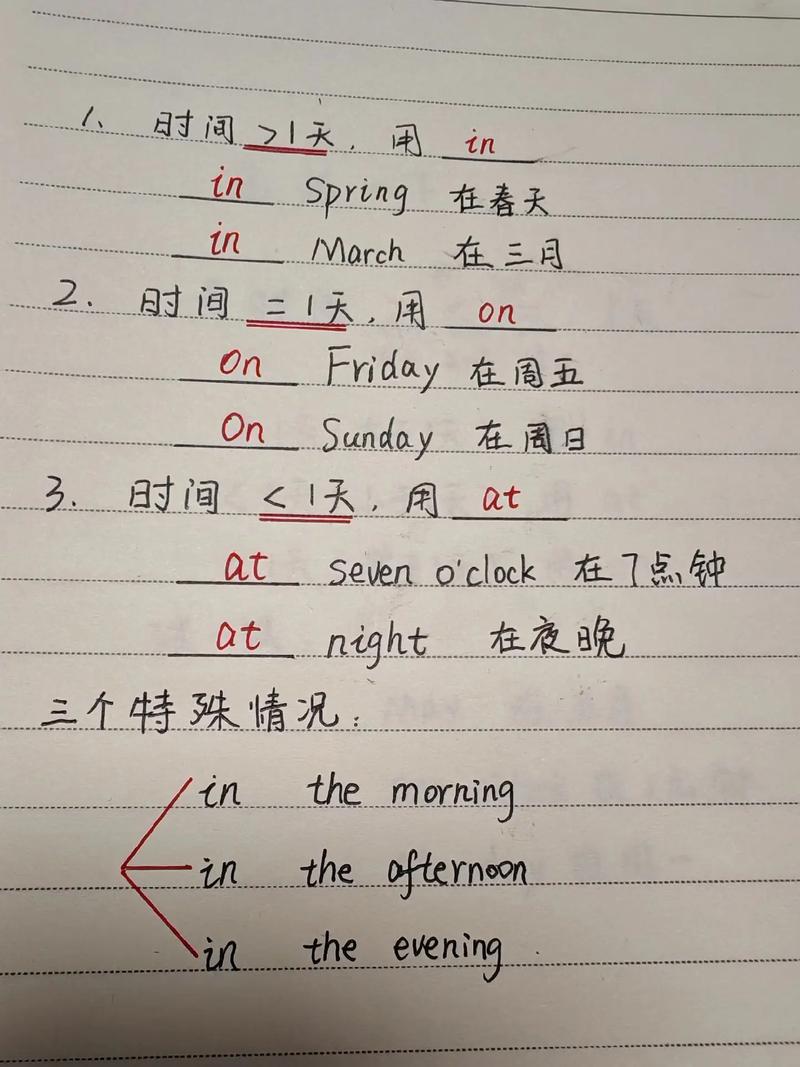 1、时间 >1天，用 in
in Spring 在春天
in March 在三月
2. 时间 =1天，用 on
on Friday 在周五
On Sunday 在周日
3. 时间 <1天，用 at
at seven o'clock 在7点钟
at night 在夜晚
三个特殊情况：
in the morning
in the afternoon
in the evening.